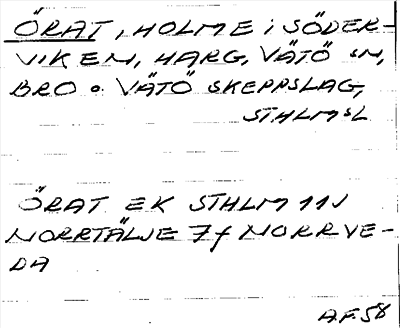 ÖRAT, HOLME i SÖDER-
VIKEN, HARG, VÄTÖ SN,
BRO o. VÄTÖ SKEPPSLAG,
STHLMSL
ÖRAT EK STHLM 11J
NORRTÄLJE 7f NORRVE-
DA
A.F. 58